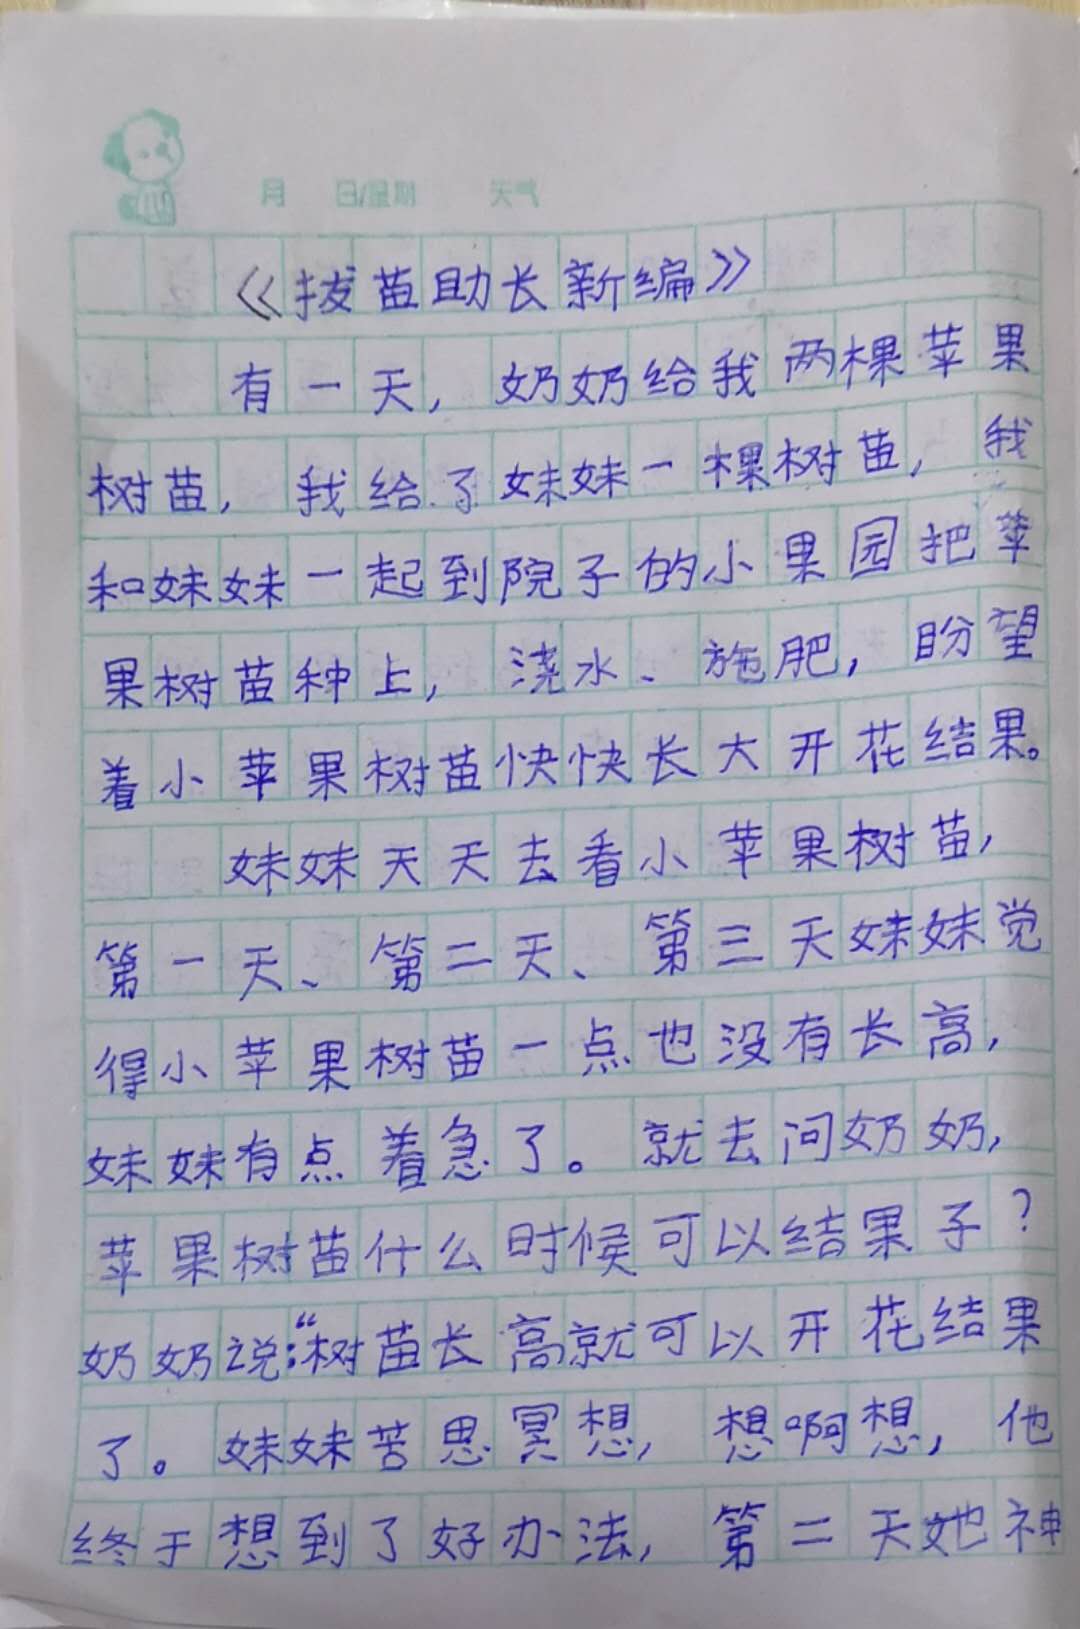 月 日/星期 天气
《拔苗助长新编》
有一天，奶奶给我两棵苹果
树苗，我给了妹妹一棵树苗，我
和妹妹一起到院子的小果园把苹
果树苗种上，浇水、施肥，盼望
着小苹果树苗快快长大开花结果。
妹妹天天去看小苹果树苗，
第一天、第二天、第三天妹妹觉
得小苹果树苗一点也没有长高，
妹妹有点着急了。就去问奶奶，
苹果树苗什么时候可以结果子？
奶奶说：“树苗长高就可以开花结果
了。妹妹苦思冥想，想啊想，他
终于想到了好办法，第二天她神